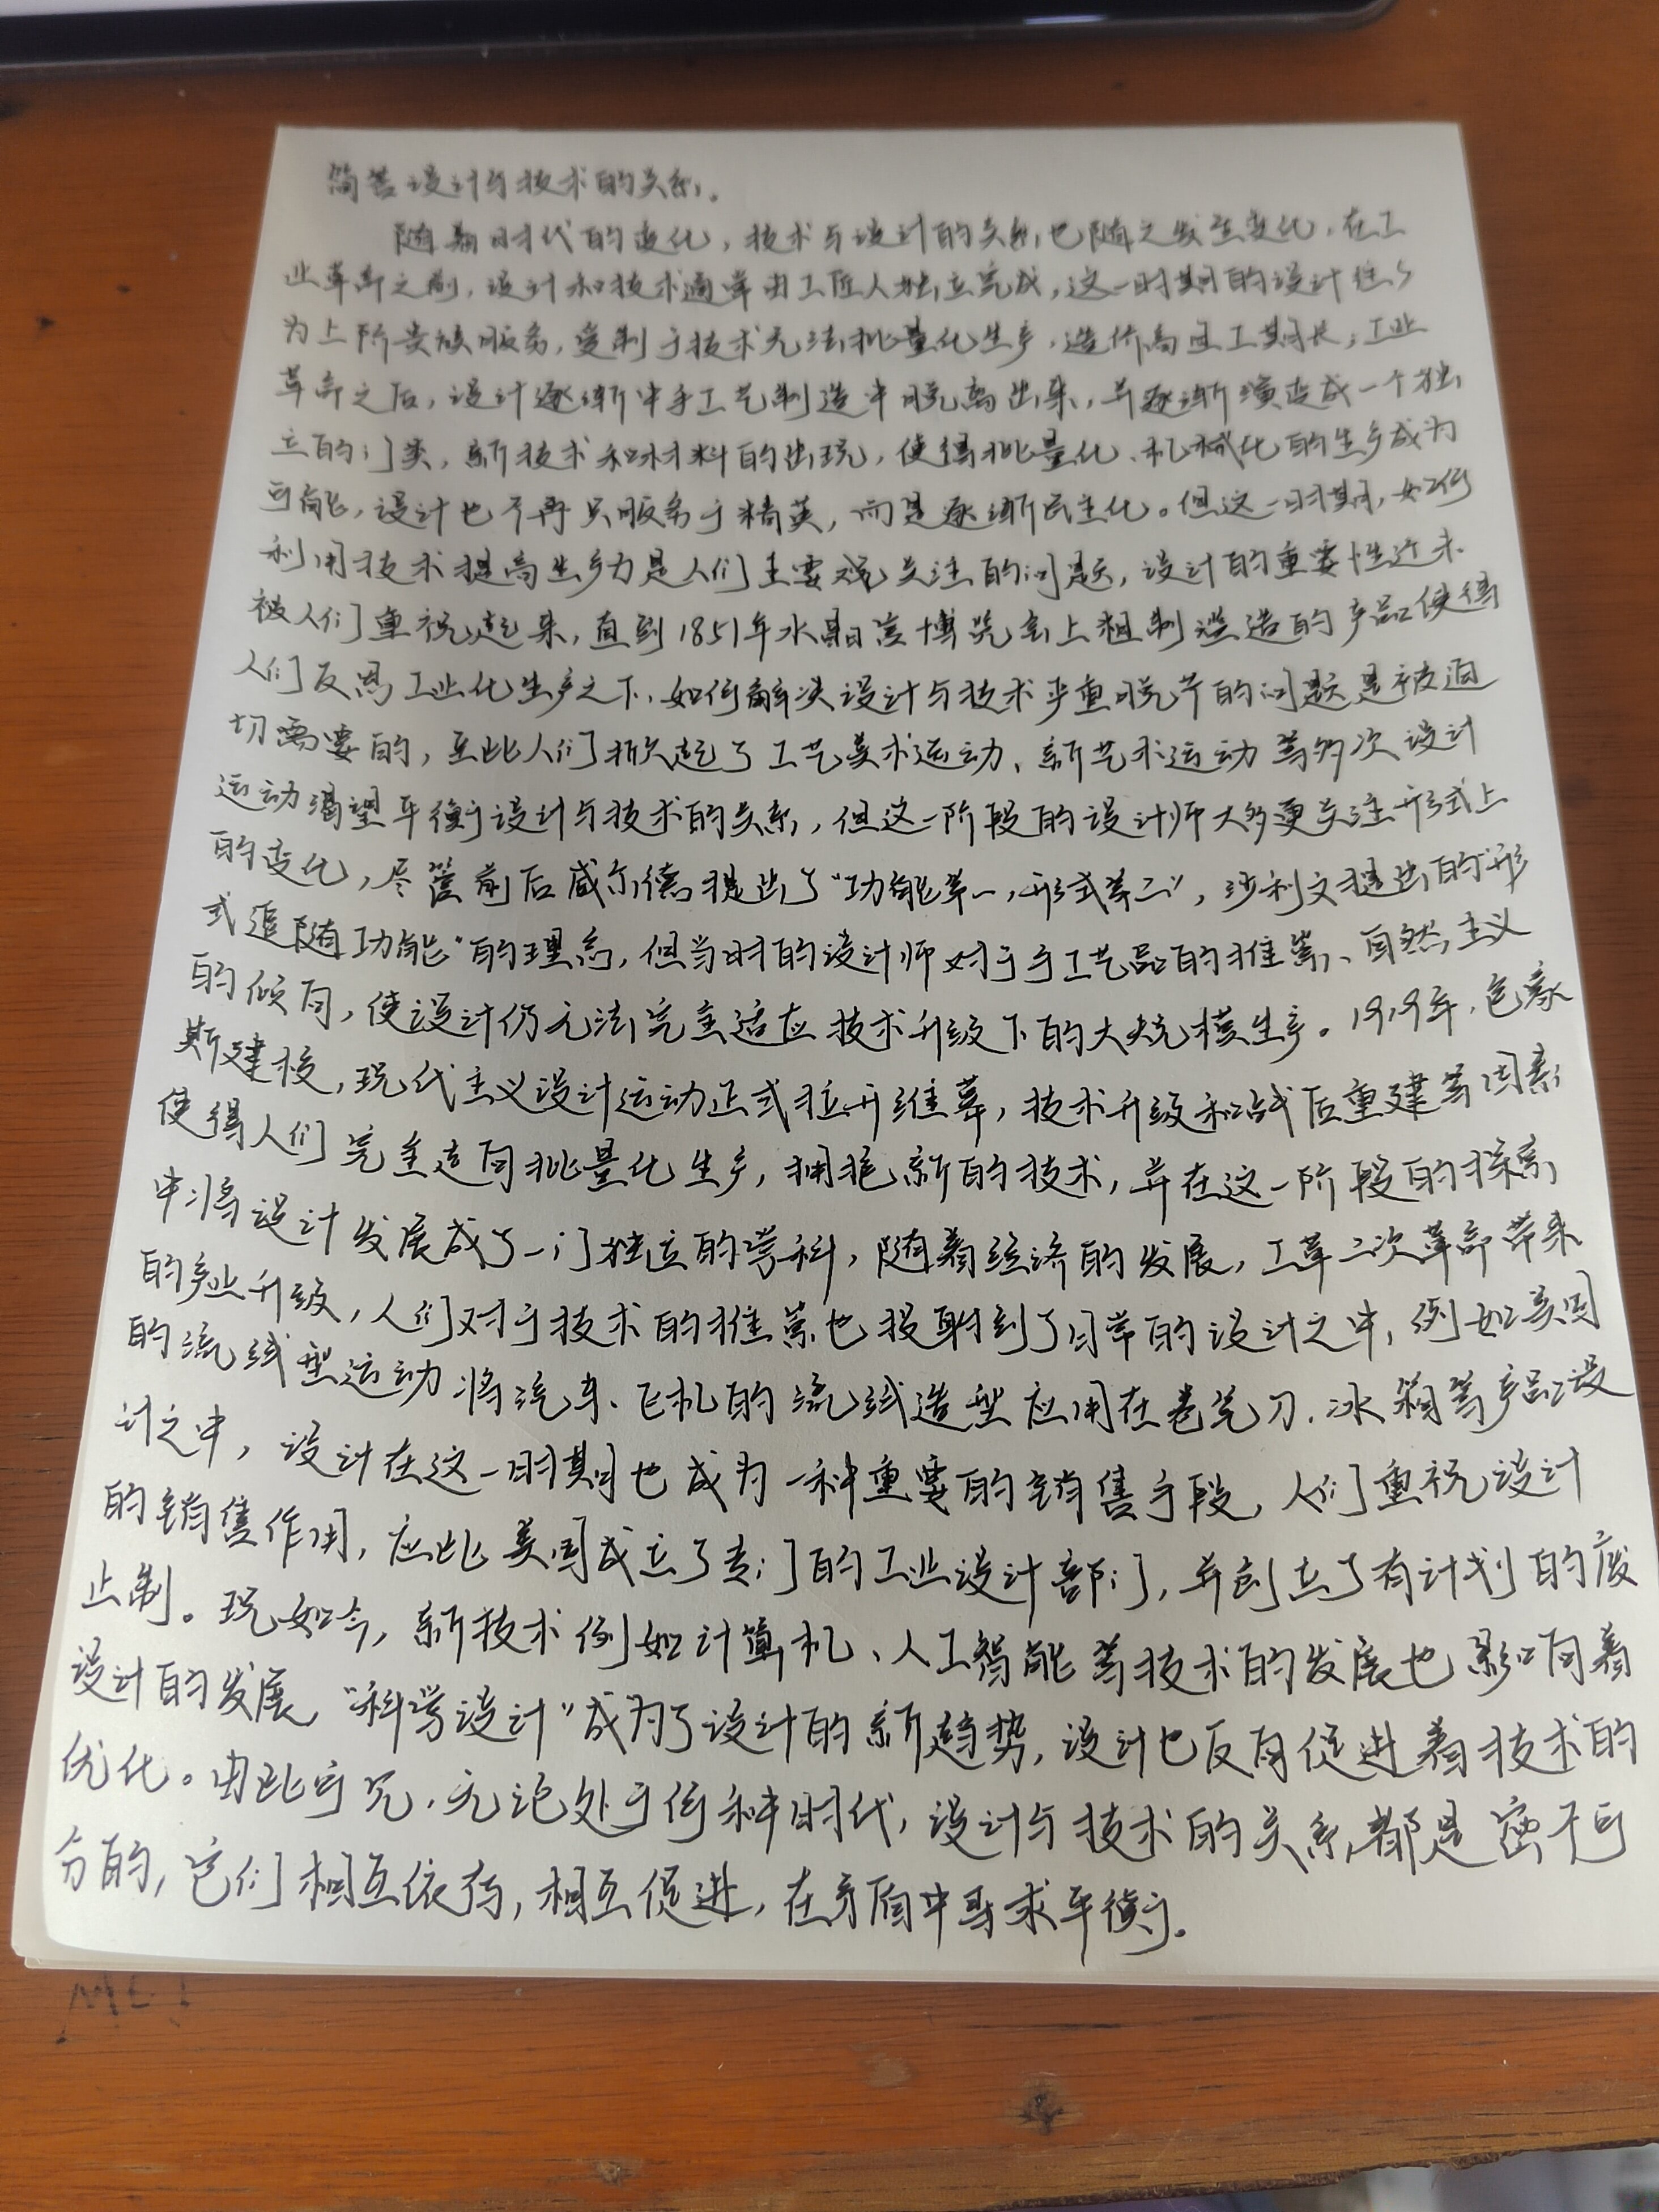 简答设计与技术的关系。
随着时代的变化，技术与设计的关系也随之发生变化，在工
业革命之前，设计和技术通常由工匠人独立完成，这一时期的设计往々
为上阶贵族服务，受制于技术无法批量化生产，造价高且工期长；工业
革命之后，设计逐渐中手工艺制造中脱离出来，并逐渐演变成一个独
立的门类，新技术和材料的出现，使得批量化、机械化的生产成为
可能，设计也不再只服务于精英，而是逐渐民主化。但这一时期，如何
利用技术提高生产力是人们主要关注的问题，设计的重要性还未
被人们重视起来，直到1851年水晶宫博览会上粗制滥造的产品使得
人们反思工业化生产之下，如何解决设计与技术严重脱节的问题是被迫
切需要的，至此人们掀起了工艺美术运动、新艺术运动等多次设计
运动渴望平衡设计与技术的关系，但这一阶段的设计师大多更关注形式上
的变化，尽管前后威尔德提出了“功能第一，形式第二”，沙利文提出的“形
式追随功能”的理念，但当时的设计师对于手工艺品的推崇、自然主义
的倾向，使设计仍无法完全适应技术升级下的大规模生产。1919年，包豪
斯建校，现代主义设计运动正式拉开维幕，技术升级和战后重建等因素
使得人们完全走向批量化生产，拥抱新的技术，并在这一阶段的探索
中将设计发展成了一门独立的学科，随着经济的发展，工革二次革命带来
的产业升级，人们对于技术的推崇也投射到了日常的设计之中，例如美国
的流线型运动将汽车、飞机的流线造型应用在卷笔刀、冰箱等产品设
计之中，设计在这一时期也成为一种重要的销售手段，人们重视设计
的销售作用，应此美国成立了专门的工业设计部门，并创立了有计划的废
止制。现如今，新技术例如计算机、人工智能等技术的发展也影响着
设计的发展，“科学设计”成为了设计的新趋势，设计也反向促进着技术的
优化。由此可见，无论处于何种时代，设计与技术的关系都是密不可
分的，它们相互依存，相互促进，在矛盾中寻求平衡。